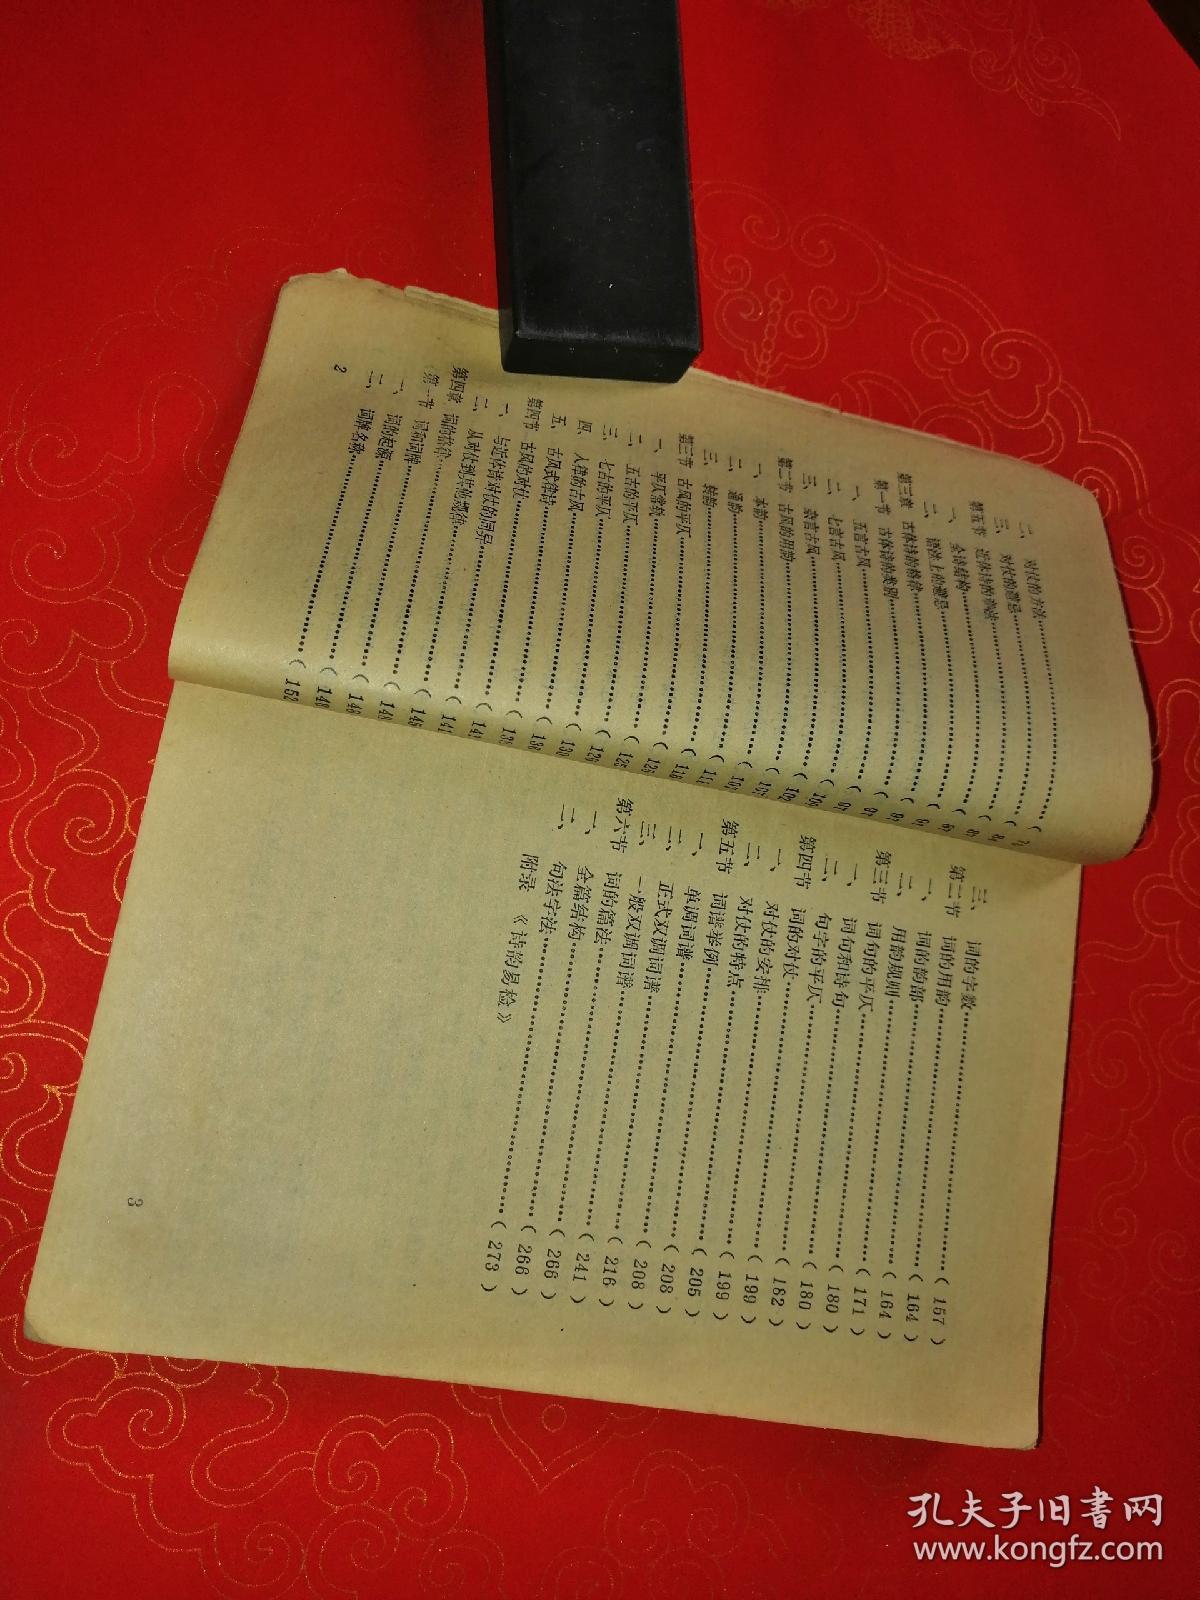 二、 对仗的方法
三、 对仗的避忌
第五节 近体诗的章法
一、 全诗结构
二、 语法上的避忌
第三章 古体诗的格律
第一节 古体诗的类别
一、 五言古风
二、 七言古风
三、 杂言古风
第二节 古风的用韵
一、 本韵
二、 通韵
三、 转韵
第三节 古风的平仄
一、 平仄常轨
二、 五古的平仄
三、 七古的平仄
四、 入律的古风
五、 古风式律诗
第四节 古风的对仗
一、 与近体诗对仗的同异
二、 从对仗到其他规律
第四章 词的格律
第一节 词和词牌
一、 词的起源………(148
二、 词牌名称………(152
2
三、 词的字数………(157)
第二节 词的用韵………(164)
一、 词的韵部………(164)
二、 用韵规则………(171)
第三节 词句的平仄………(180)
一、 词句和诗句………(180)
二、 句字的平仄………(182)
第四节 词的对仗………(199)
一、 对仗的安排………(199)
二、 对仗的特点………(205)
第五节 词谱举例………(208)
一、 单调词谱………(208)
二、 正式双调词谱………(216)
三、 一般双调词谱………(241)
第六节 词的篇法………(266)
一、 全篇结构………(266)
二、 句法字法………(273)
附录 《诗韵易检》
3
孔夫子旧書网
www.kongfz.com